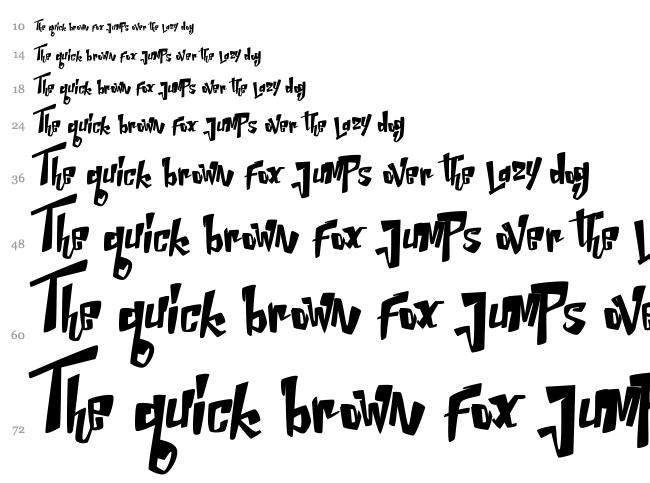 10 The quick brown fox jumps over the lazy dog
14 The quick brown fox jumps over the lazy dog
18 The quick brown fox jumps over the lazy dog
24 The quick brown fox jumps over the lazy dog
36 The quick brown fox jumps over the lazy dog
48 The quick brown fox jumps over the l
60 The quick brown fox jumps ove
72 The quick brown fox jump